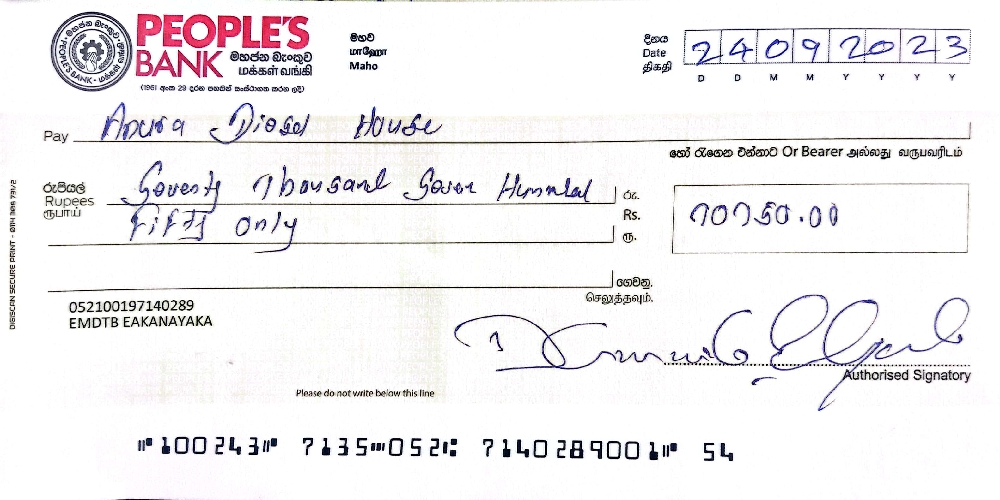 PEOPLE'S
BANK මහජන බැංකුව
மக்கள் வங்கி
(1961 අංක 29 දරන පනතින් සංස්ථාගත කරන ලදි)
මහව
மாஹோ
Maho
දිනය
Date
திகதி
24092023
D D M M Y Y Y Y
Pay Anura Diesel House
හෝ රැගෙන එන්නාට Or Bearer அல்லது வருபவரிடம்
රුපියල්
Rupees
ரூபாய்
Seventy Thousand Seven Hundred
Fifty only
රු.
Rs.
ரூ.
70750.00
ගෙවනු.
செலுத்தவும்.
052100197140289
EMDTB EAKANAYAKA
Authorised Signatory
Please do not write below this line
⑈100243⑈ 7135⑉052⑆ 7140289001⑈ 54